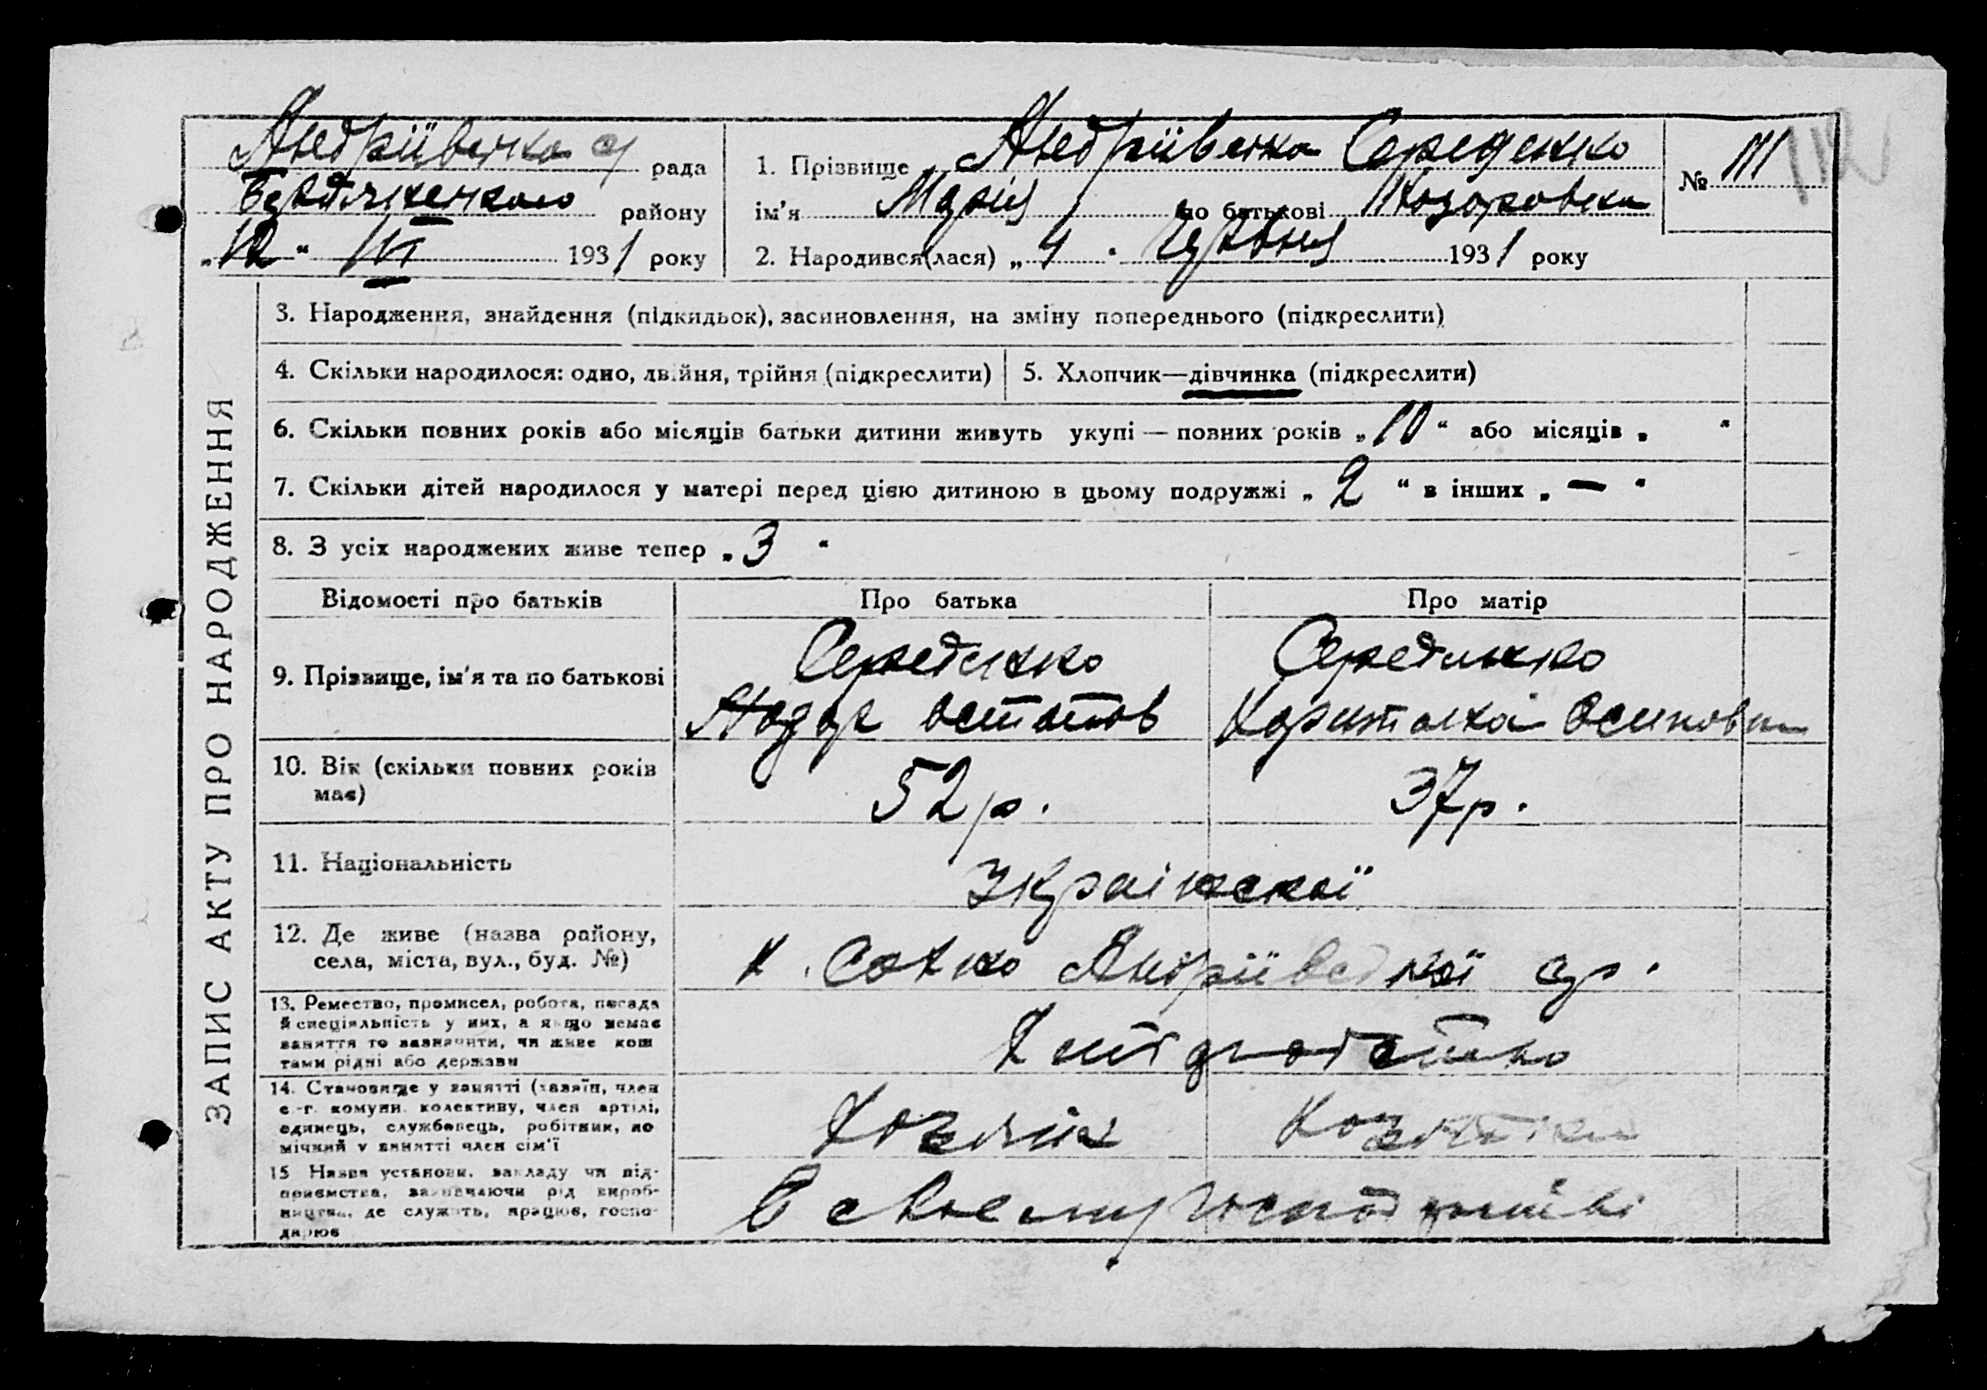 Андріївська с/ рада
Бердянського району
„12“ VI 1931 року
1. Прізвище Андріївська Середенко
ім'я Марія по батькові
2. Народився(лася) „4“ червня 1931 року
№ 111 112
ЗАПИС АКТУ ПРО НАРОДЖЕННЯ
3. Народження, знайдення (підкидьок), засиновлення, на зміну попереднього (підкреслити)
4. Скільки народилося: одно, двійня, трійня (підкреслити)
5. Хлопчик—дівчинка (підкреслити)
6. Скільки повних років або місяців батьки дитини живуть укупі — повних років „10“ або місяців „ “
7. Скільки дітей народилося у матері перед цією дитиною в цьому подружжі „2“ в інших „—“
8. З усіх народжених живе тепер „3“
Відомості про батьків
Про батька
Про матір
9. Прізвище, ім'я та по батькові
Середенко
остапов
Середенко
Осиповна
10. Вік (скільки повних років
має)
52 р.
37 р.
11. Національність
Української
12. Де живе (назва району,
села, міста, вул., буд. №)
Андріївської с/р.
13. Ремество, промисел, робота, посада
й спеціяльність у них, а якщо немає
заняття то зазначити, чи живе кош
тами рідні або держави
14. Становище у занятті (хазяїн, член
с.-г. комуни, колективу, член артілі,
одинець, службовець, робітник, по
мічний у занятті член сім'ї
Хозяїн
Хозяйка
15 Назва установи, закладу чи під-
приємства, зазначаючи рід вироб-
ництва, де служить, працює, госпо-
дарює
В своєму господарстві